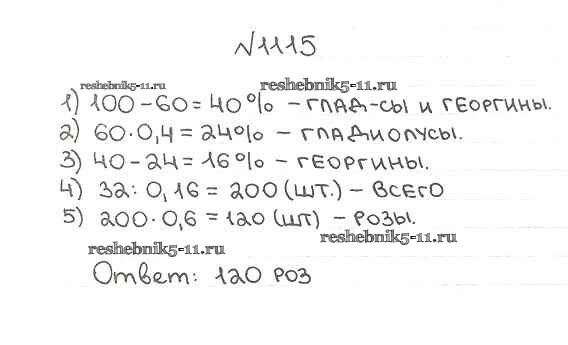 №1115
reshebnik5-11.ru reshebnik5-11.ru
1) 100-60=40% - ГЛАД-СЫ И ГЕОРГИНЫ.
2) 60·0,4=24% - ГЛАДИОЛУСЫ.
3) 40-24=16% - ГЕОРГИНЫ.
4) 32:0,16=200 (ШТ.) - ВСЕГО
5) 200·0,6=120 (ШТ) - РОЗЫ.
reshebnik5-11.ru reshebnik5-11.ru
Ответ: 120 РОЗ